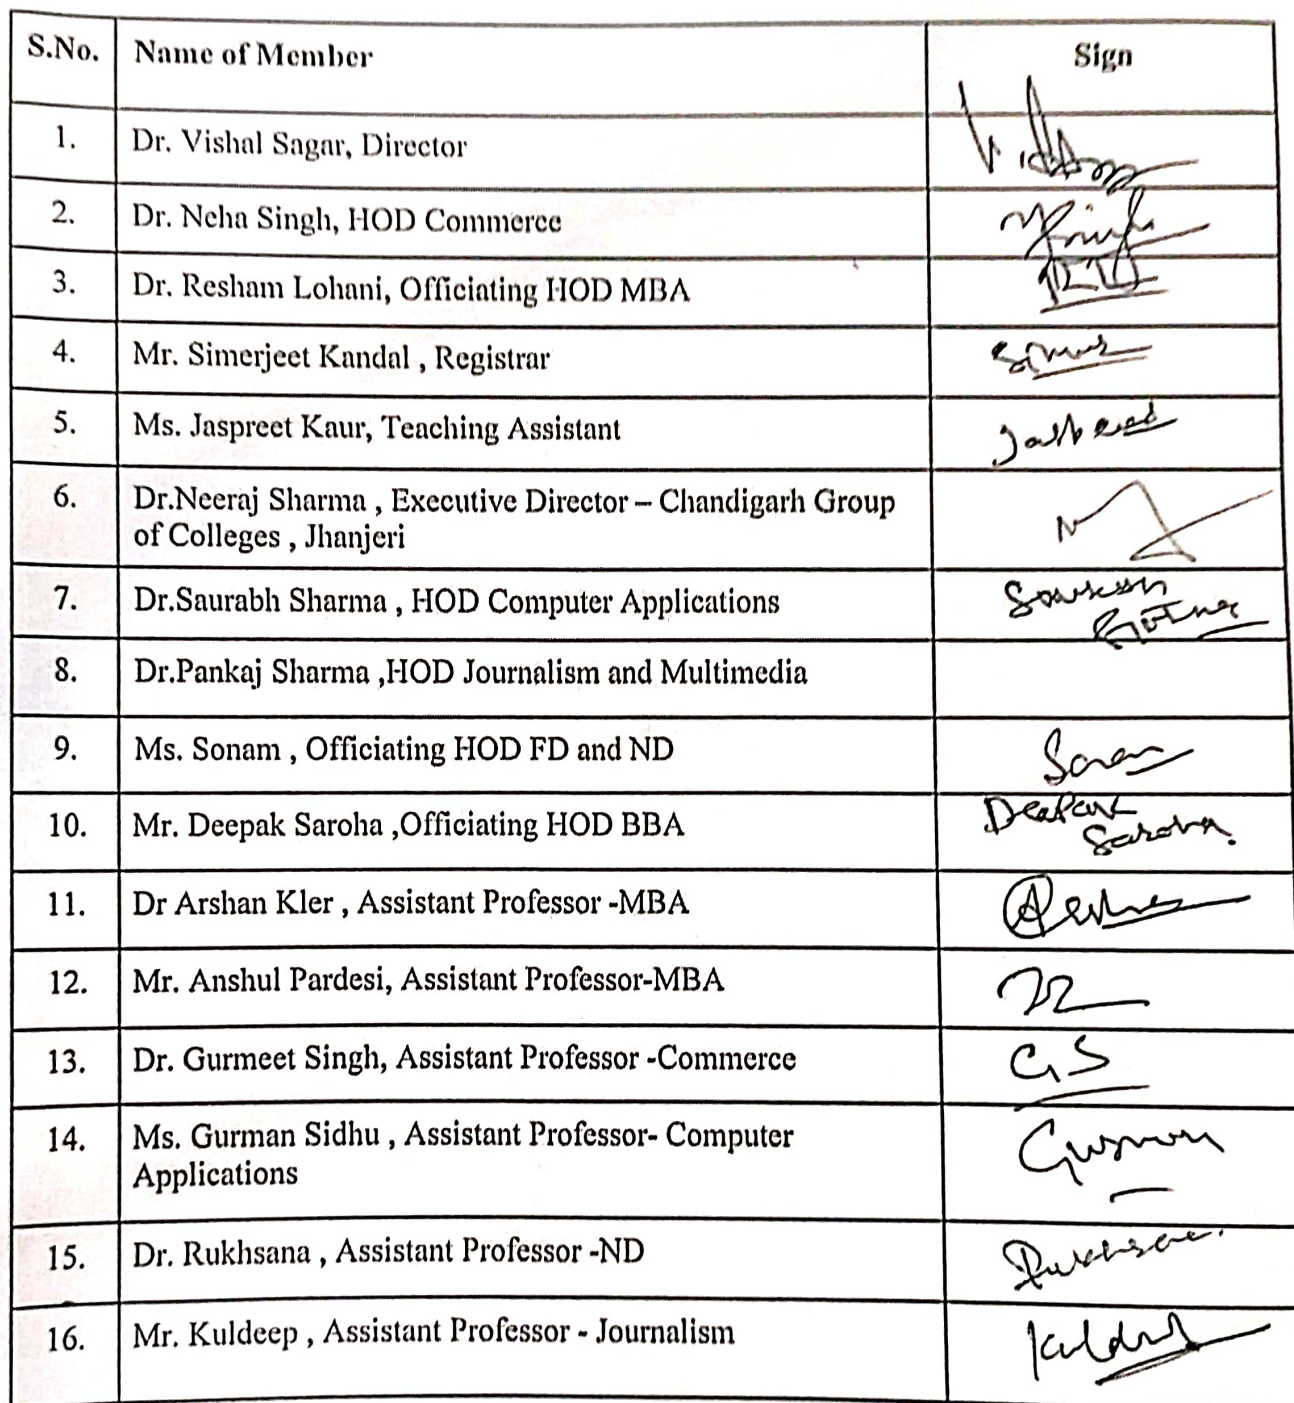 S.No. Name of Member Sign
1. Dr. Vishal Sagar, Director
2. Dr. Neha Singh, HOD Commerce
3. Dr. Resham Lohani, Officiating HOD MBA
4. Mr. Simerjeet Kandal , Registrar
5. Ms. Jaspreet Kaur, Teaching Assistant
6. Dr.Neeraj Sharma , Executive Director – Chandigarh Group
of Colleges , Jhanjeri
7. Dr.Saurabh Sharma , HOD Computer Applications
8. Dr.Pankaj Sharma ,HOD Journalism and Multimedia
9. Ms. Sonam , Officiating HOD FD and ND
10. Mr. Deepak Saroha ,Officiating HOD BBA Deepak
Saroha.
11. Dr Arshan Kler , Assistant Professor -MBA
12. Mr. Anshul Pardesi, Assistant Professor-MBA
13. Dr. Gurmeet Singh, Assistant Professor -Commerce GS
14. Ms. Gurman Sidhu , Assistant Professor- Computer
Applications
15. Dr. Rukhsana , Assistant Professor -ND
16. Mr. Kuldeep , Assistant Professor - Journalism